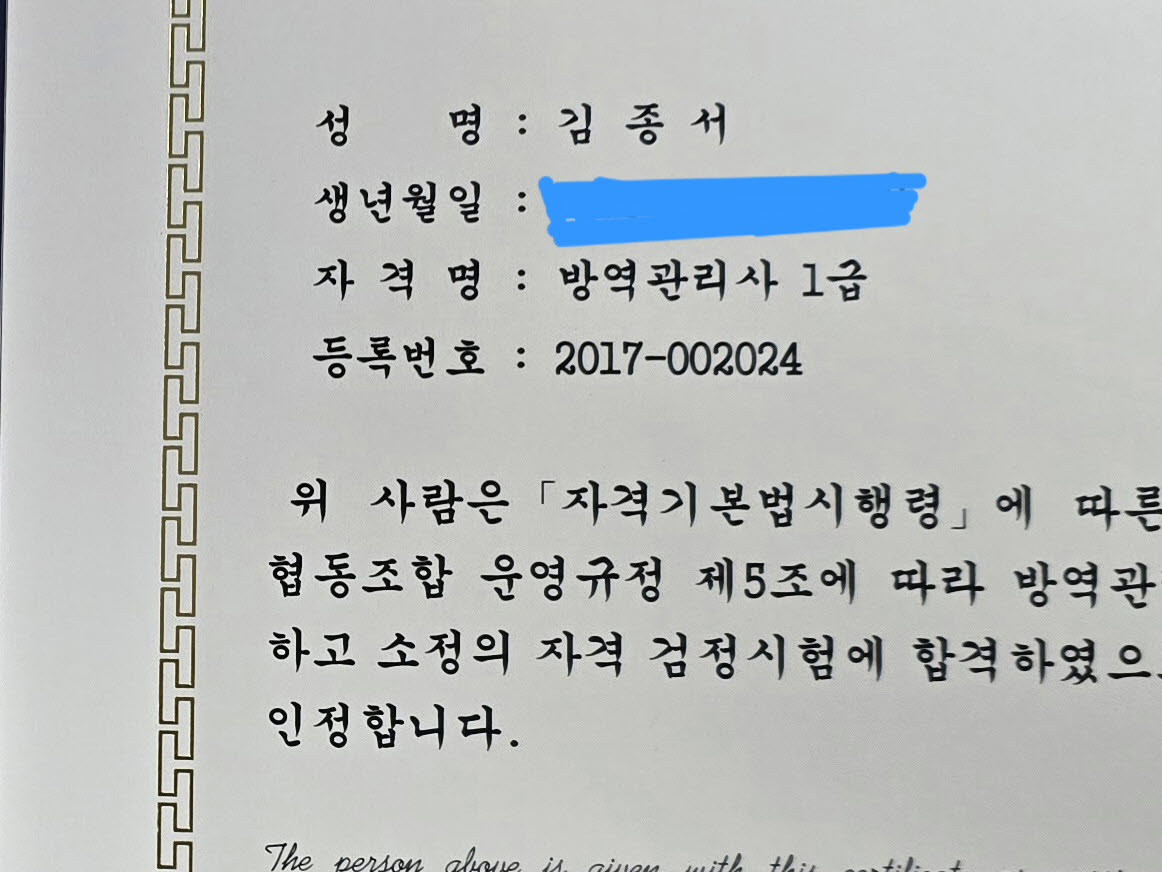 성 명 : 김 종 서
생년월일 :
자 격 명 : 방역관리사 1급
등록번호 : 2017-002024
위 사람은 「자격기본법시행령」에 따른
협동조합 운영규정 제5조에 따라 방역관
하고 소정의 자격 검정시험에 합격하였으
인정합니다.
The person above is given with this